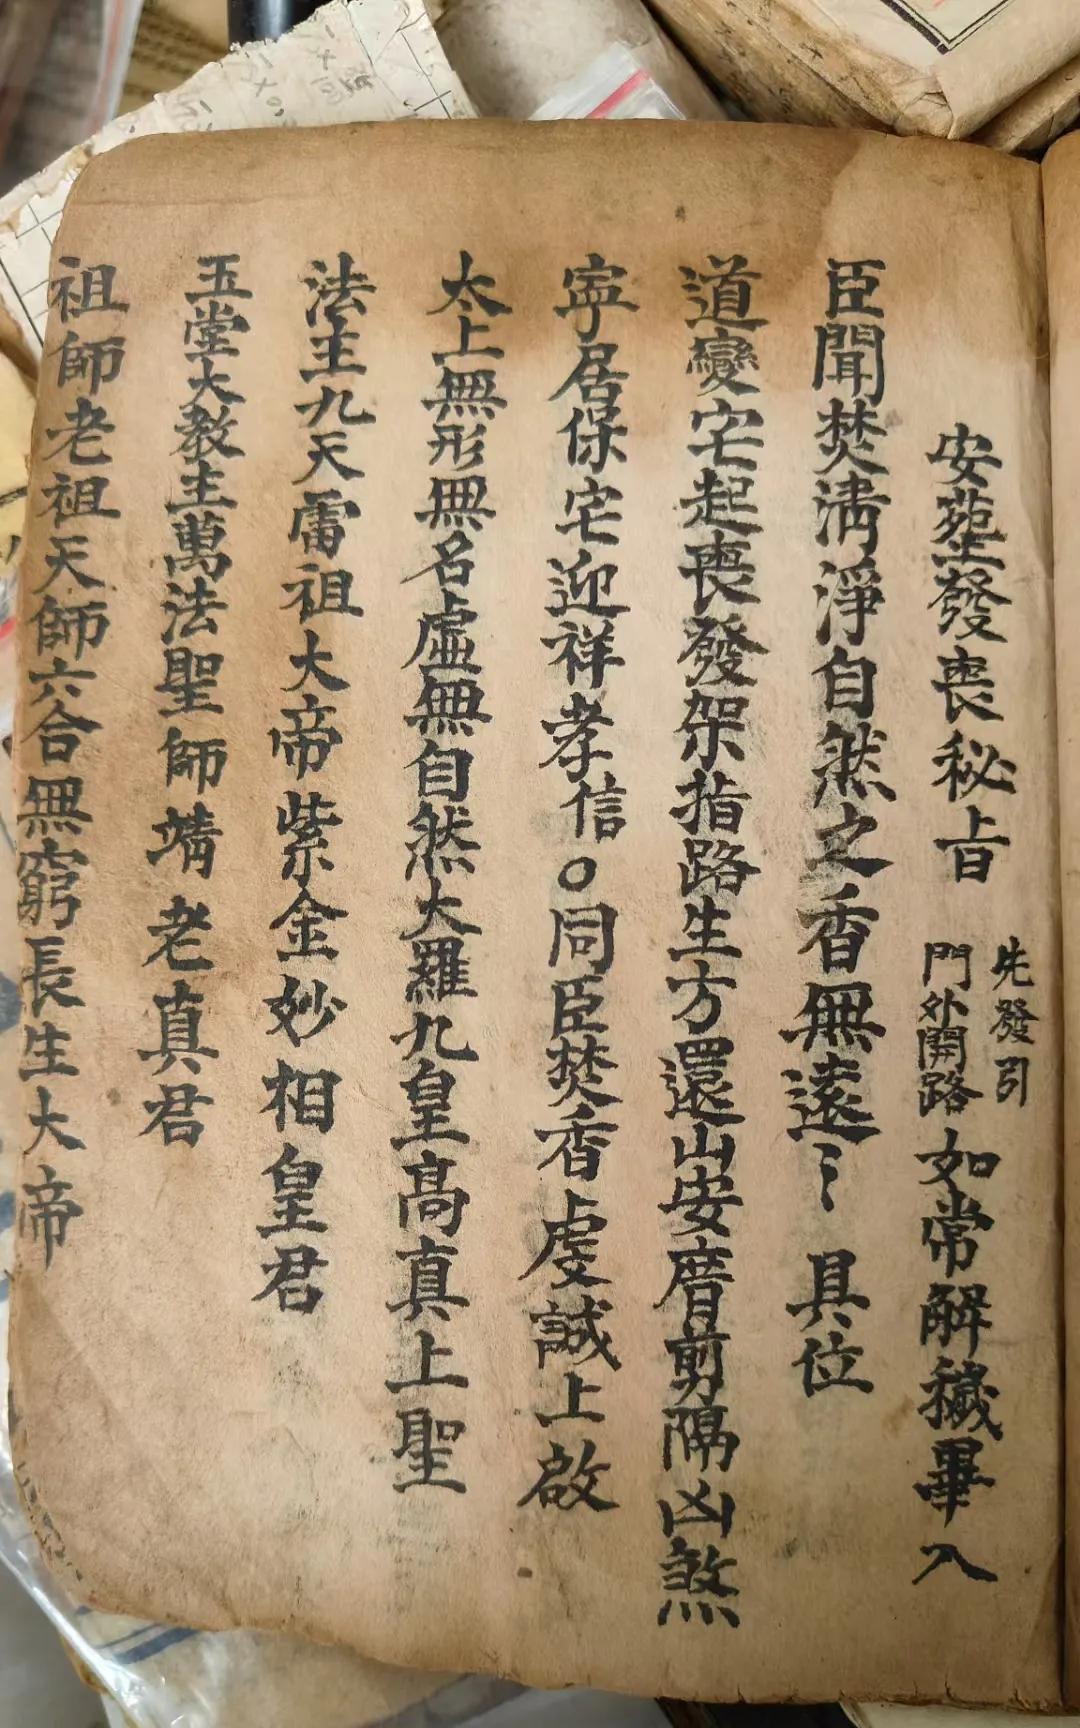 安塟發喪秘旨 先發引門外開路 如常解穢畢入
臣聞焚清淨自然之香無遠〻 具位
道變宅起喪發架指路生方還山安厝剪隔凶煞
寧居保宅迎祥孝信〇同臣焚香虔誠上啟
太上無形無名虛無自然大羅九皇高真上聖
法主九天雷祖大帝紫金妙相皇君
玉堂大教主萬法聖師靖老真君
祖師老祖天師六合無窮長生大帝